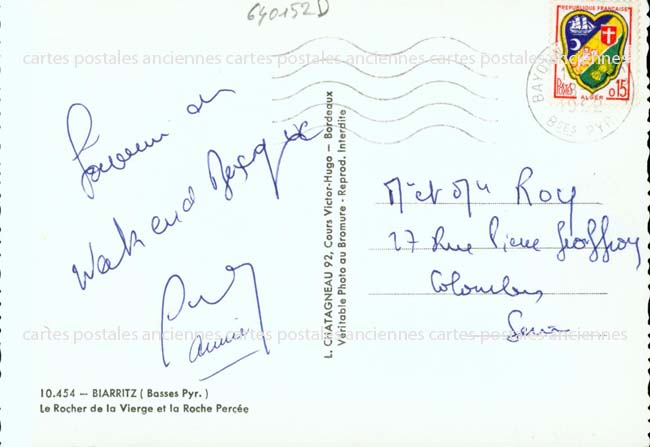 640152D
REPUBLIQUE FRANCAISE
ALGER
POSTES
0,15
BAYONNE
BSES PYR.
cartes postales anciennes cartes postales anciennes cartes postales anciennes
Souvenir du
Week end Basque
Annie
L. CHATAGNEAU 92, Cours Victor-Hugo — Bordeaux
Véritable Photo au Bromure - Reprod. Interdite
Mr et Me Roy
27 Rue Pierre Geoffroy
Colombes
Seine
cartes postales anciennes cartes postales anciennes cartes postales anciennes
10.454 — BIARRITZ ( Basses Pyr. )
Le Rocher de la Vierge et la Roche Percée